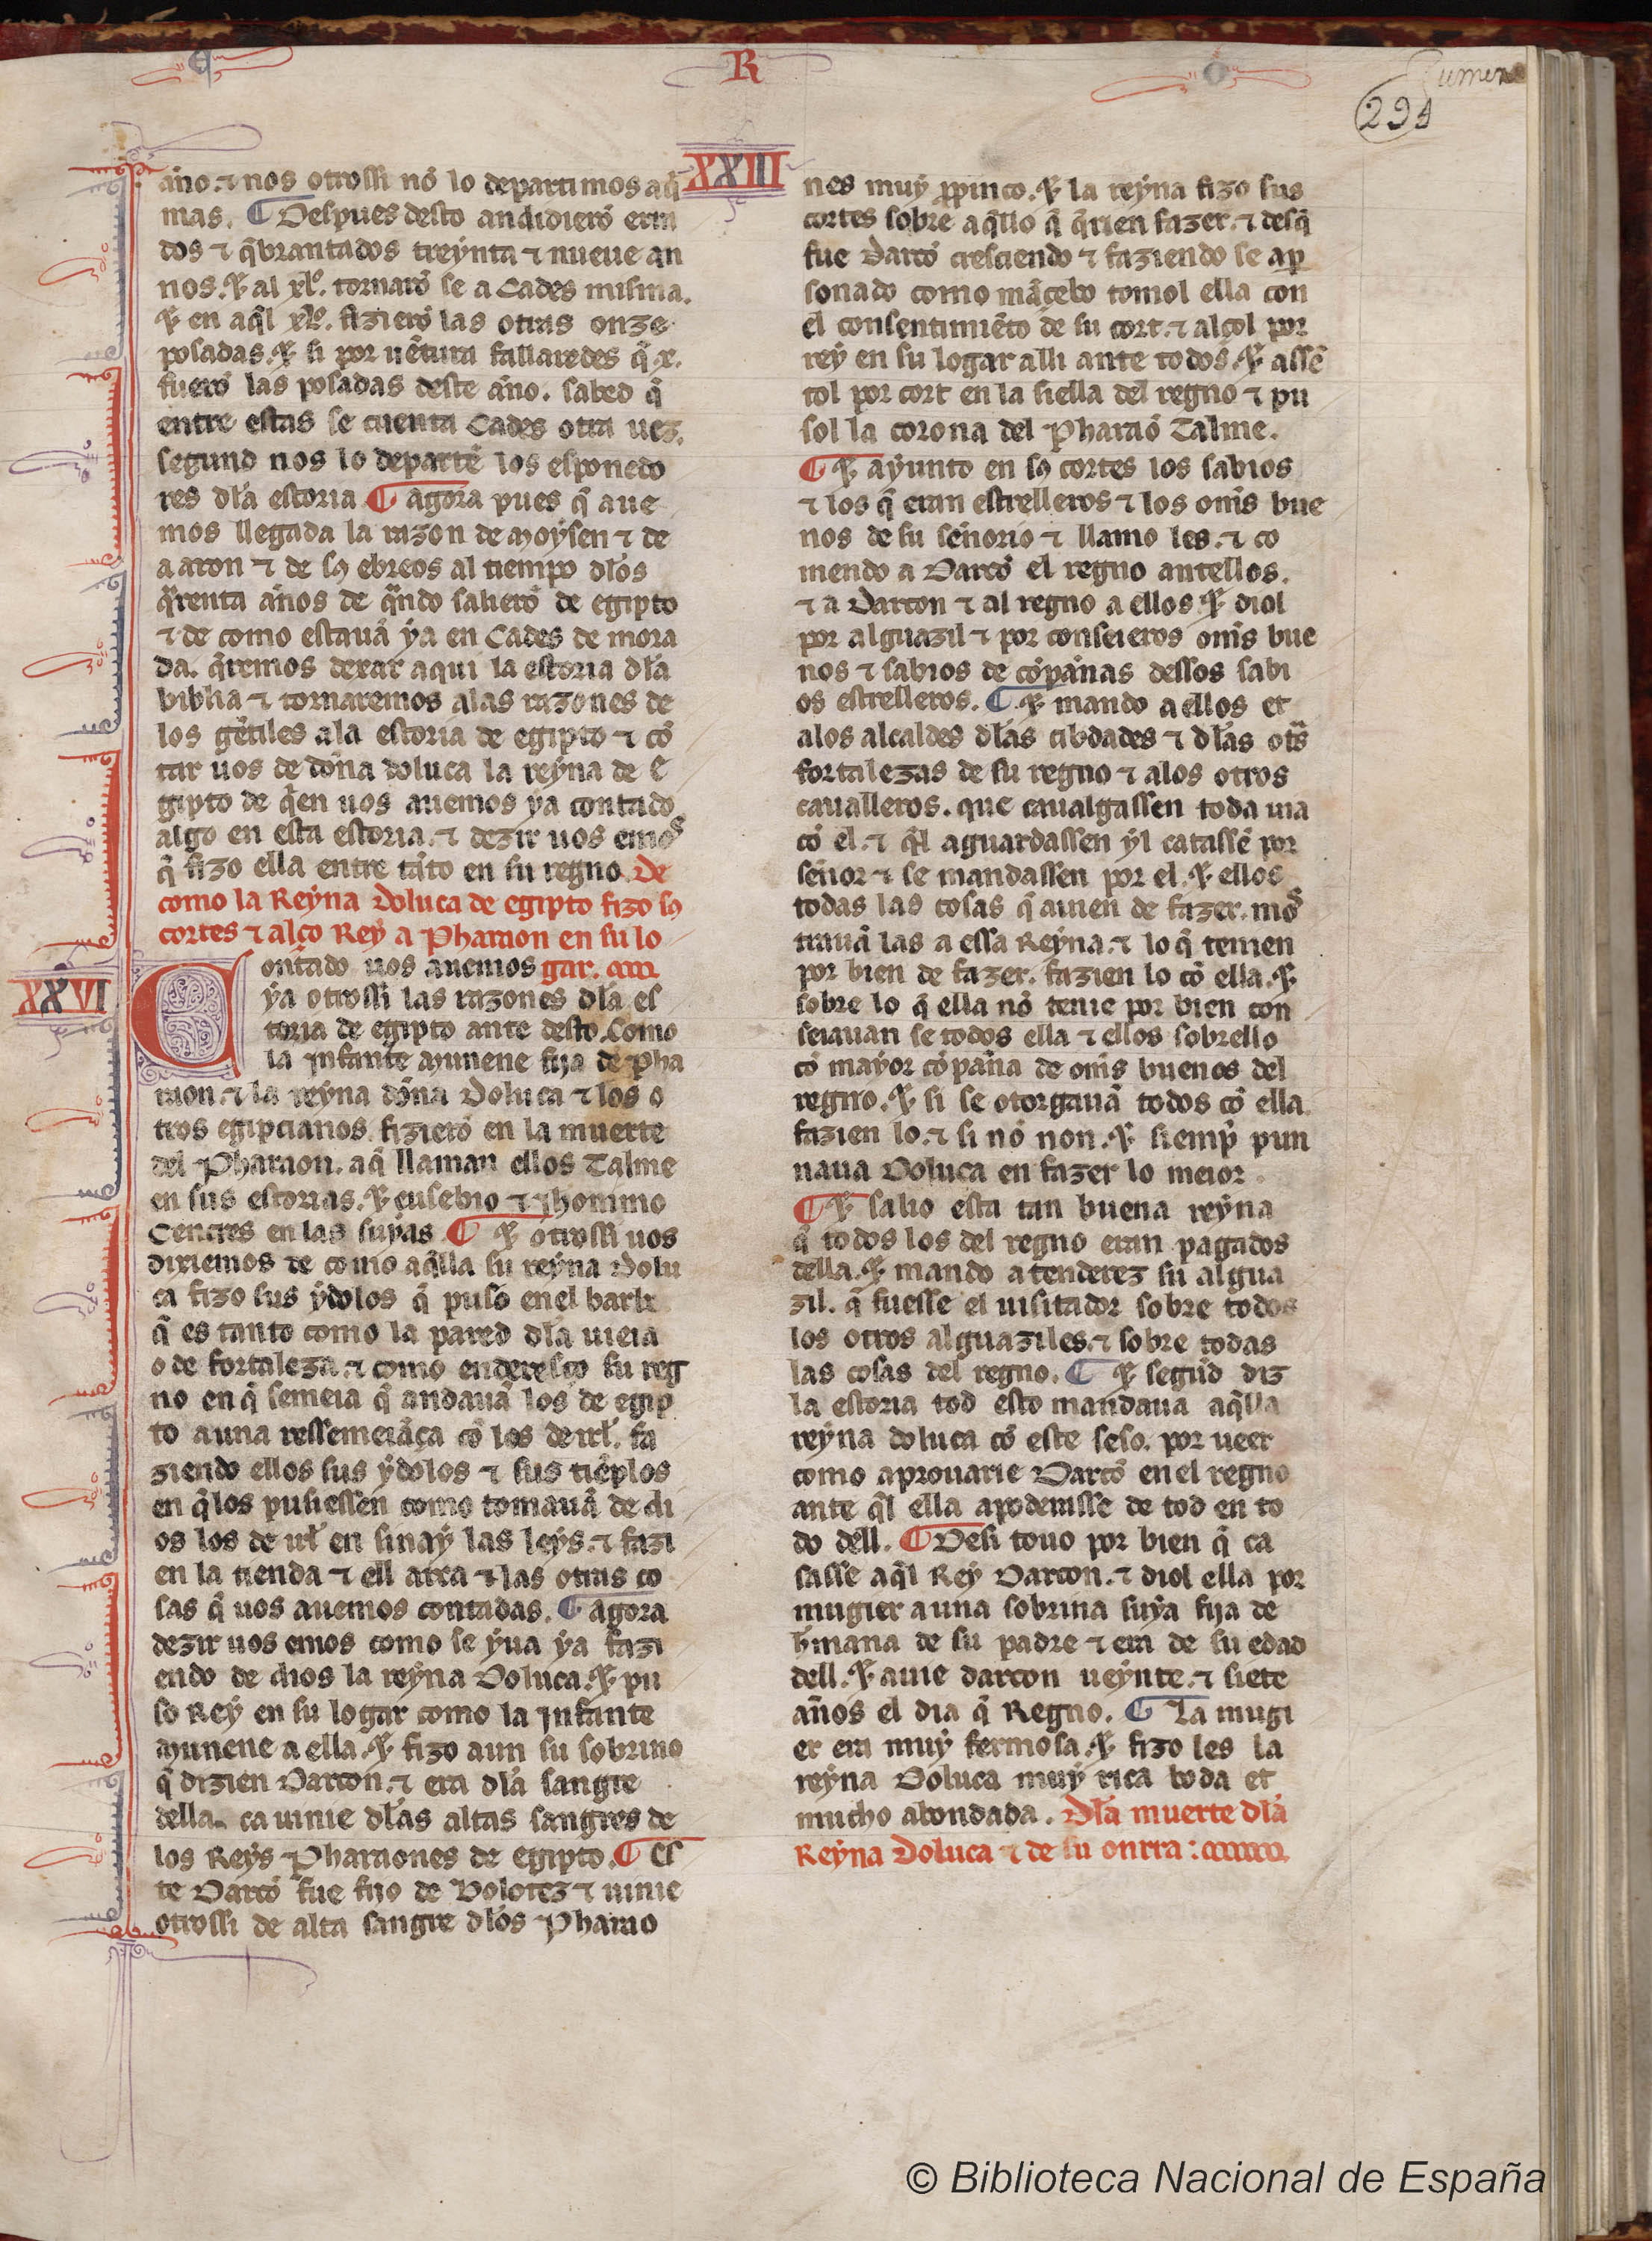 E R O
Numeri
294
XXIII
año. ⁊ nos otrossi nõ lo departimos aq̃
mas. ¶ Despues desto andidierõ erra
dos ⁊ q̃brantados treynta ⁊ nueue an
nos. ⁊ al xl̊. tornarõ se a Cades misma.
⁊ en aq̃l xl̊. fizierõ las otras onze
posadas. ⁊ si por uẽtura fallaredes q̃ .x.
fuerõ las posadas deste año. sabed q̃
entre estas se cuenta Cades otra uez.
segund nos lo departẽ los esponedo
res dła estoria. ¶ agora pues q̃ aue
mos llegada la razon de moysen ⁊ de
aaron ⁊ de sꝯ ebreos al tiempo dłos
q̃renta años de q̃ndo salierõ de egipto
⁊ de como estauã ya en Cades de mora
da. q̃remos dexar aqui la estoria dła
biblia ⁊ tornaremos alas razones de
los gẽtiles ala estoria de egipto ⁊ cõ
tar uos de doña doluca la reyna de e
gipto de q̃en uos auemos ya contado
algo en esta estoria. ⁊ dezir uos emos
q̃ fizo ella entre tãto en su regno. De
como la Reyna Doluca de egipto fizo sꝯ
cortes ⁊ alço Rey a Pharaon en su lo
gar.
XXVI
Contado uos auemos
ya otrossi las razones dła es
toria de egipto ante desto. Como
la jnfante munene fija de pha
raon. ⁊ la reyna doña Doluca ⁊ los o
tros egipcianos fizierõ en la muerte
del Pharaon. aq̃ llaman ellos Talme
en sus estorias. ⁊ eusebio ⁊ ihonimo
Cencres en las suyas. ¶ ⁊ otrossi uos
dixiemos de como aq̃lla su reyna Dolu
ca fizo sus ydolos q̃ puso enel barbe
q̃ es tanto como la pared dła uieia
o de fortaleza. ⁊ como enderesço su reg
no en q̃ semeia q̃ andauã los de egip
to auna ressemeiãça cõ los de irł. fa
ziendo ellos sus ydolos ⁊ sus tiẽplos
en q̃ los pusiessen como tomauã de di
os los de irł en sinay las leys. ⁊ fazi
en la tienda ⁊ ell arca ⁊ las otras co
sas q̃ uos auemos contadas. ¶ agora
dezir uos emos como se yua ya fazi
endo de dios la reyna Doluca. ⁊ pu
so Rey en su logar como la jnfante
munene a ella. ⁊ fizo aun su sobrino
q̃ dizien Darcon. ⁊ era dła sangre
della. ca uinie dłas altas sangres de
los Reys Pharaones de egipto. ¶ Es
te Darcõ fue fijo de Bolotez ⁊ uinie
otrossi de alta sangre dłos Pharao
nes muy ꝓpinco. ⁊ la reyna fizo sus
cortes sobre aq̃llo q̃ q̃rien fazer. ⁊ desq̃
fue Darcõ cresciendo ⁊ faziendo se aꝑ
sonado como mãcebo tomol ella con
el consentimiẽto de su cort. ⁊ alçol por
rey en su logar alli ante todos. ⁊ assẽ
tol por cort en la siella del regno ⁊ pu
sol la corona del Pharaõ Talme.
¶ ⁊ ayunto en sꝯ cortes los sabios
⁊ los q̃ eran estrelleros ⁊ los om̃s bue
nos de su señorio ⁊ llamo les. ⁊ co
mendo a Darcõ el regno antellos.
⁊ a Darcon ⁊ al regno a ellos. ⁊ diol
por alguazil ⁊ por conseieros om̃s bue
nos ⁊ sabios de cõpañas dessos sabi
os estrelleros. ¶ ⁊ mando a ellos et
alos alcaldes dłas cibdades ⁊ dłas ot̃s
fortalezas de su regno ⁊ alos otros
caualleros. que caualgassen toda uia
cõ el. ⁊ q̃l aguardassen yl catassẽ por
señor ⁊ se mandassen por el. ⁊ ellos
todas las cosas q̃ auien de fazer. mos
trauã las a essa Reyna. ⁊ lo q̃ tenien
por bien de fazer. fazien lo cõ ella. ⁊
sobre lo q̃ ella nõ tenie por bien con
seiauan se todos ella ⁊ ellos sobrello
cõ mayor cõpaña de om̃s buenos del
regno. ⁊ si se otorgauã todos cõ ella
fazien lo. ⁊ si nõ non. ⁊ siemp̃ pun
naua Doluca en fazer lo meior.
¶ ⁊ salio esta tan buena reyna
q̃ todos los del regno eran pagados
della. ⁊ mando a tenderez su algua
zil. q̃ fuesse el uisitador sobre todos
los otros alguaziles. ⁊ sobre todas
las cosas del regno. ¶ ⁊ segũd diz
la estoria tod esto mandaua aq̃lla
reyna doluca cõ este seso. por ueer
como aprouarie Darcõ enel regno
ante q̃l ella apoderasse de tod en to
do dell. ¶ Desi touo por bien q̃ ca
sasse aq̃l Rey Darcon. ⁊ diol ella por
mugier auna sobrina suya fija de
h̃mana de su padre ⁊ era de su edad
dell. ⁊ auie darcon ueynte. ⁊ siete
años el dia q̃ Regno. ¶ La mugi
er era muy fermosa. ⁊ fizo les la
reyna Doluca muy rica boda et
mucho abondada. Dła muerte dła
Reyna Doluca ⁊ de su onrra :
© Biblioteca Nacional de España